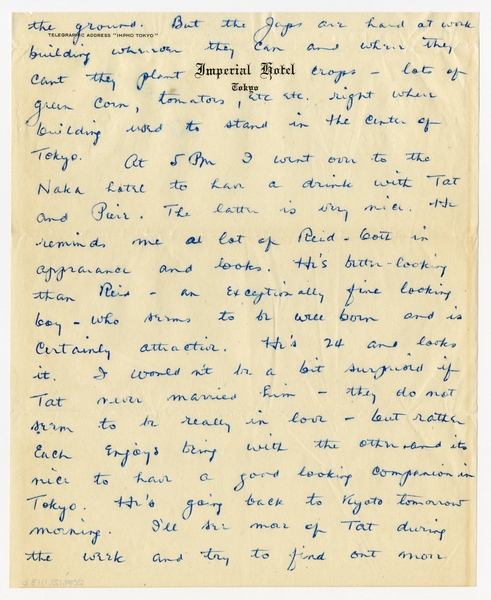 the ground. But the Japs are hard at work
TELEGRAPHIC ADDRESS "IMPHO TOKYO"
building wherever they can and where they
Imperial Hotel
Tokyo
cant they plant crops – lots of
green corn, tomatoes, etc etc. right where
building used to stand in the center of
Tokyo. At 5 PM I went over to the
Naka hotel to have a drink with Tat
and Pierr. The latter is very nice. He
reminds me a lot of Reid – both in
appearance and looks. He's better-looking
than Reid – an exceptionally fine looking
boy – who seems to be well born and is
certainly attractive. He's 24 and looks
it. I wouldn't be a bit surprised if
Tat never married him – they do not
seem to be really in love – but rather
each enjoys being with the other and its
nice to have a good looking companion in
Tokyo. He's going back to Kyoto tomorrow
morning. I'll see more of Tat during
the week and try to find out more